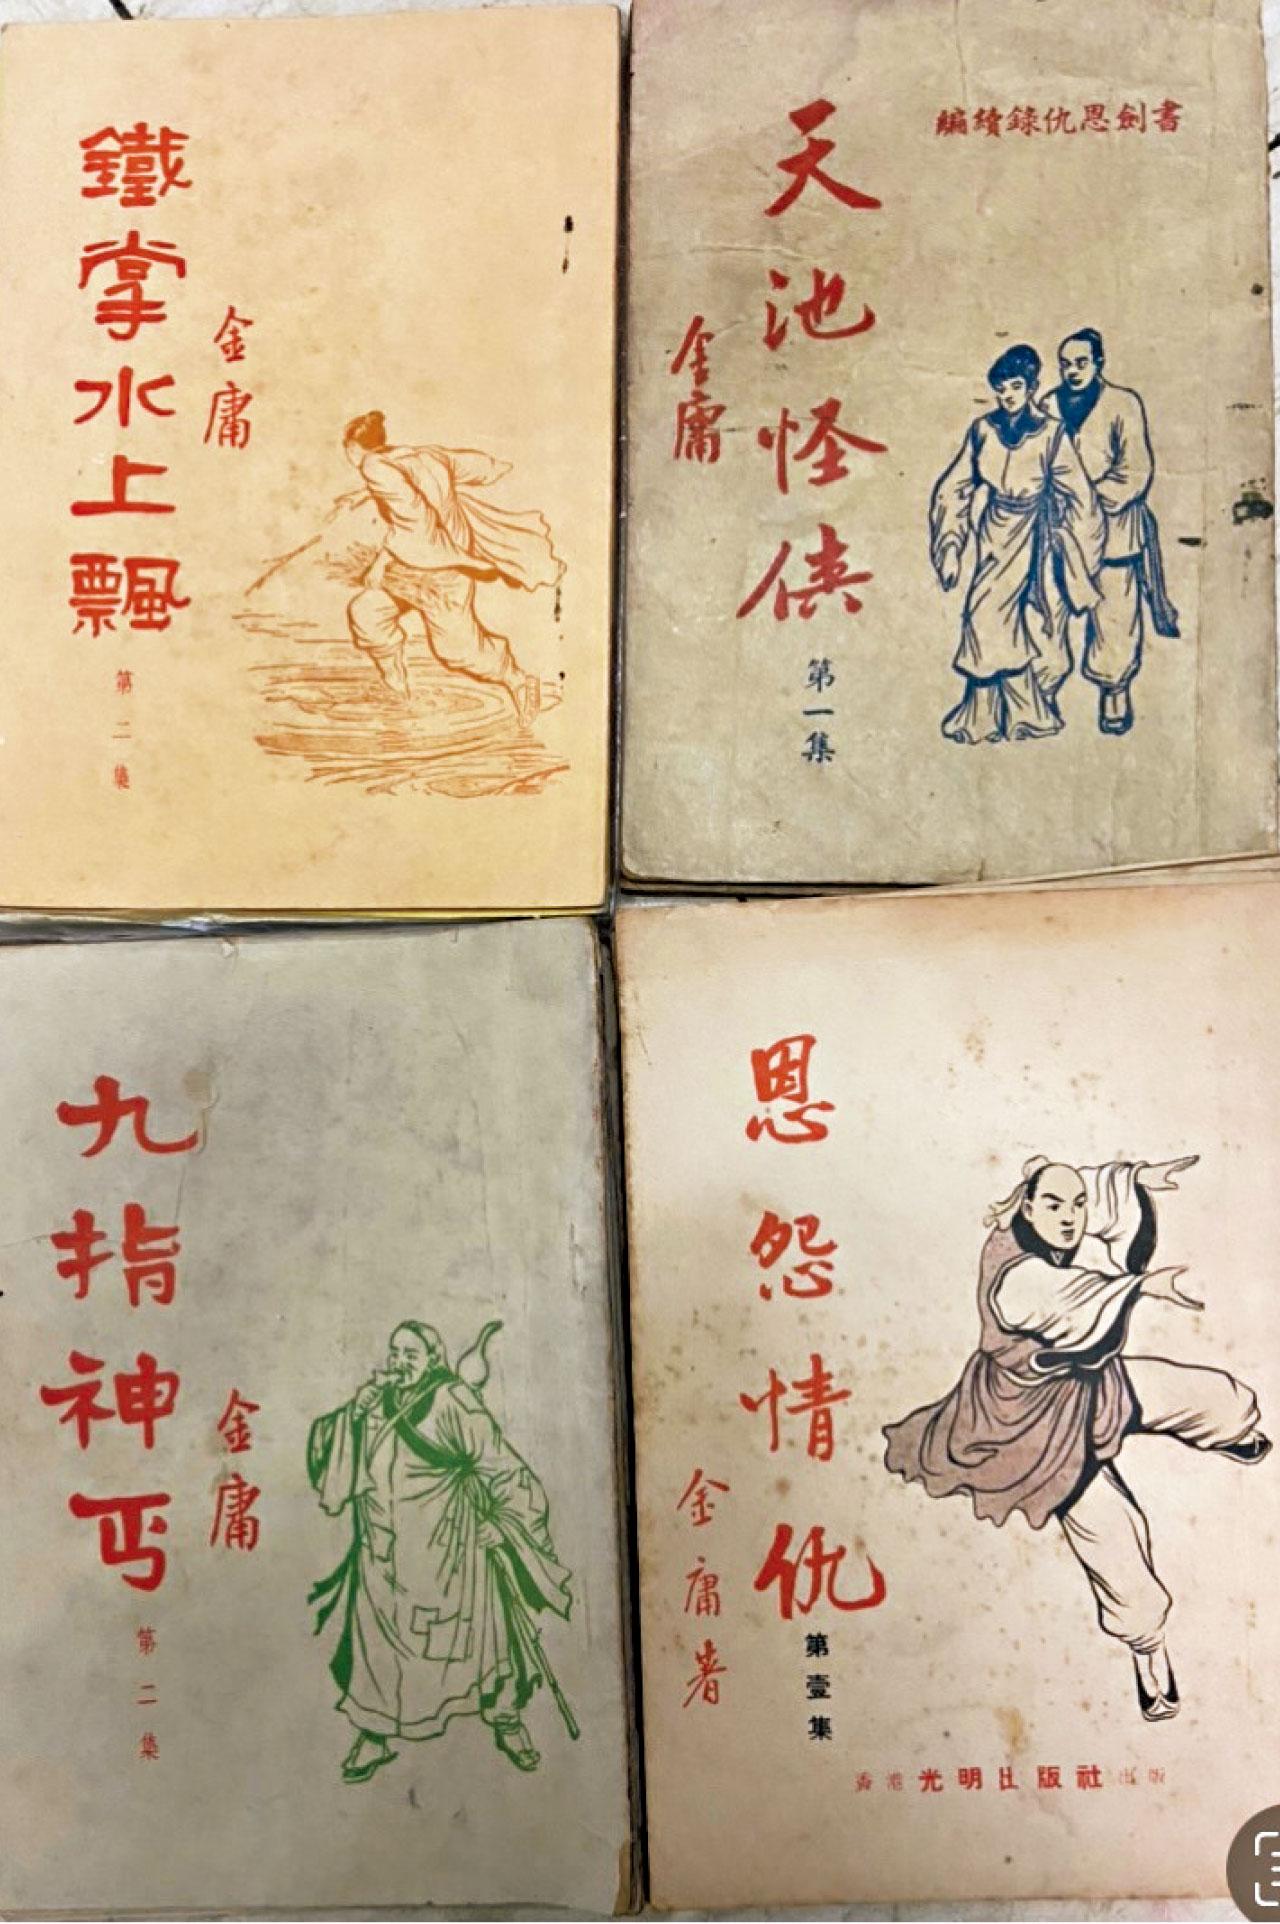 鐵掌水上飄
金庸
第二集
書劍恩仇錄續編
天池怪俠
金庸
第一集
九指神丐
金庸
第二集
恩怨情仇
金庸著
第壹集
香港光明出版社出版